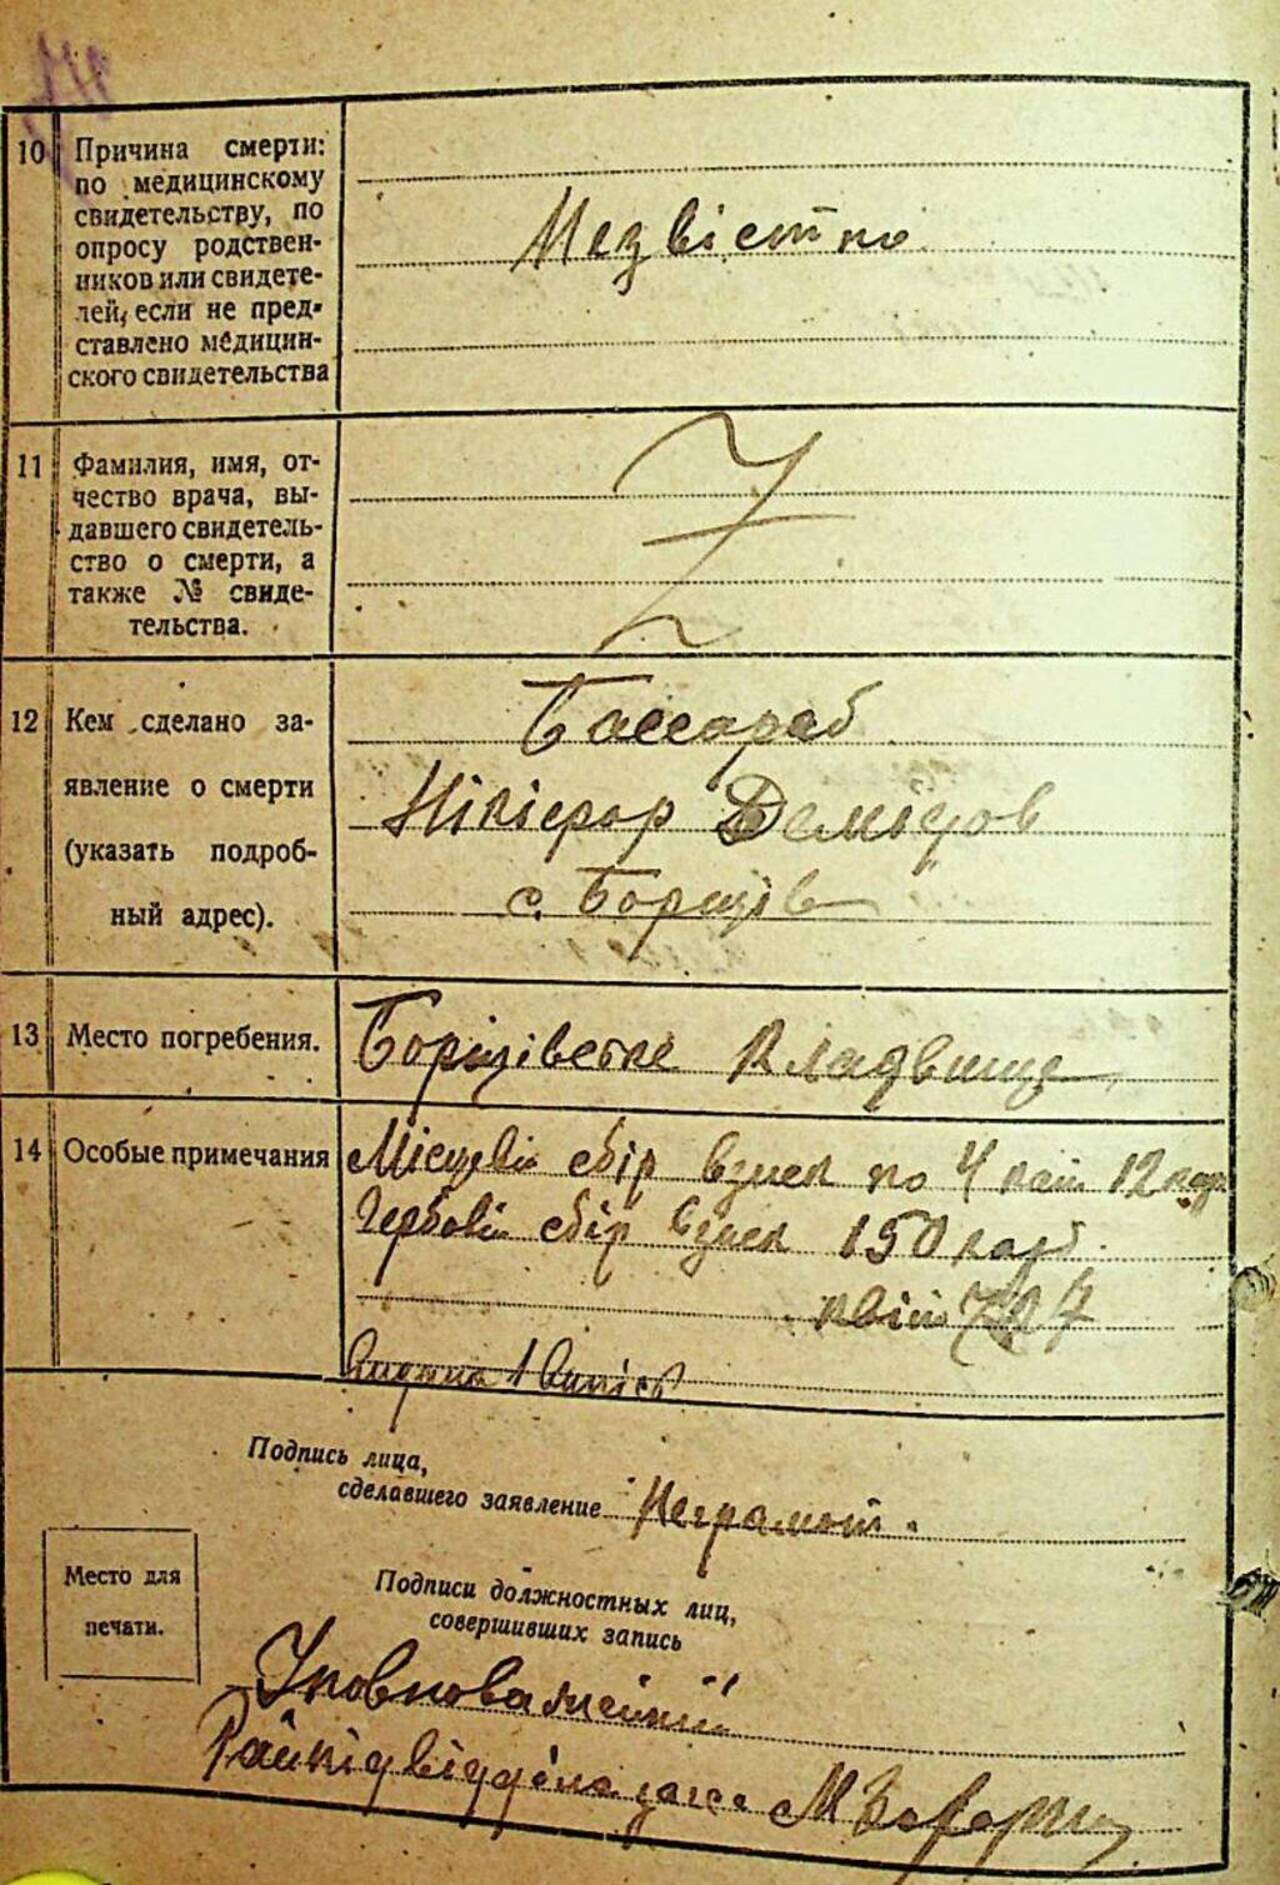 10 Причина смерти:
по медицинскому
свидетельству, по
опросу родствен-
ников или свидете-
лей, если не пред-
ставлено медицин-
ского свидетельства
Незвістно
11 Фамилия, имя, от-
чество врача, вы-
давшего свидетель-
ство о смерти, а
также № свиде-
тельства.
12 Кем сделано за-
явление о смерти
(указать подроб-
ный адрес).
Бассараб
Нікіфор Демідов
с. Борщів
13 Место погребения.
Борщівське кладвище
14 Особые примечания
Місцеві збір взиск по 4 кві 12 кар
Гербові збір взиск 150 кар
квіт 727
видана 1 випісь
Подпись лица,
сделавшего заявление Неграмот.
Место для
печати.
Подписи должностных лиц,
совершивших запись
Уповноважений
Райпідвідділа загса